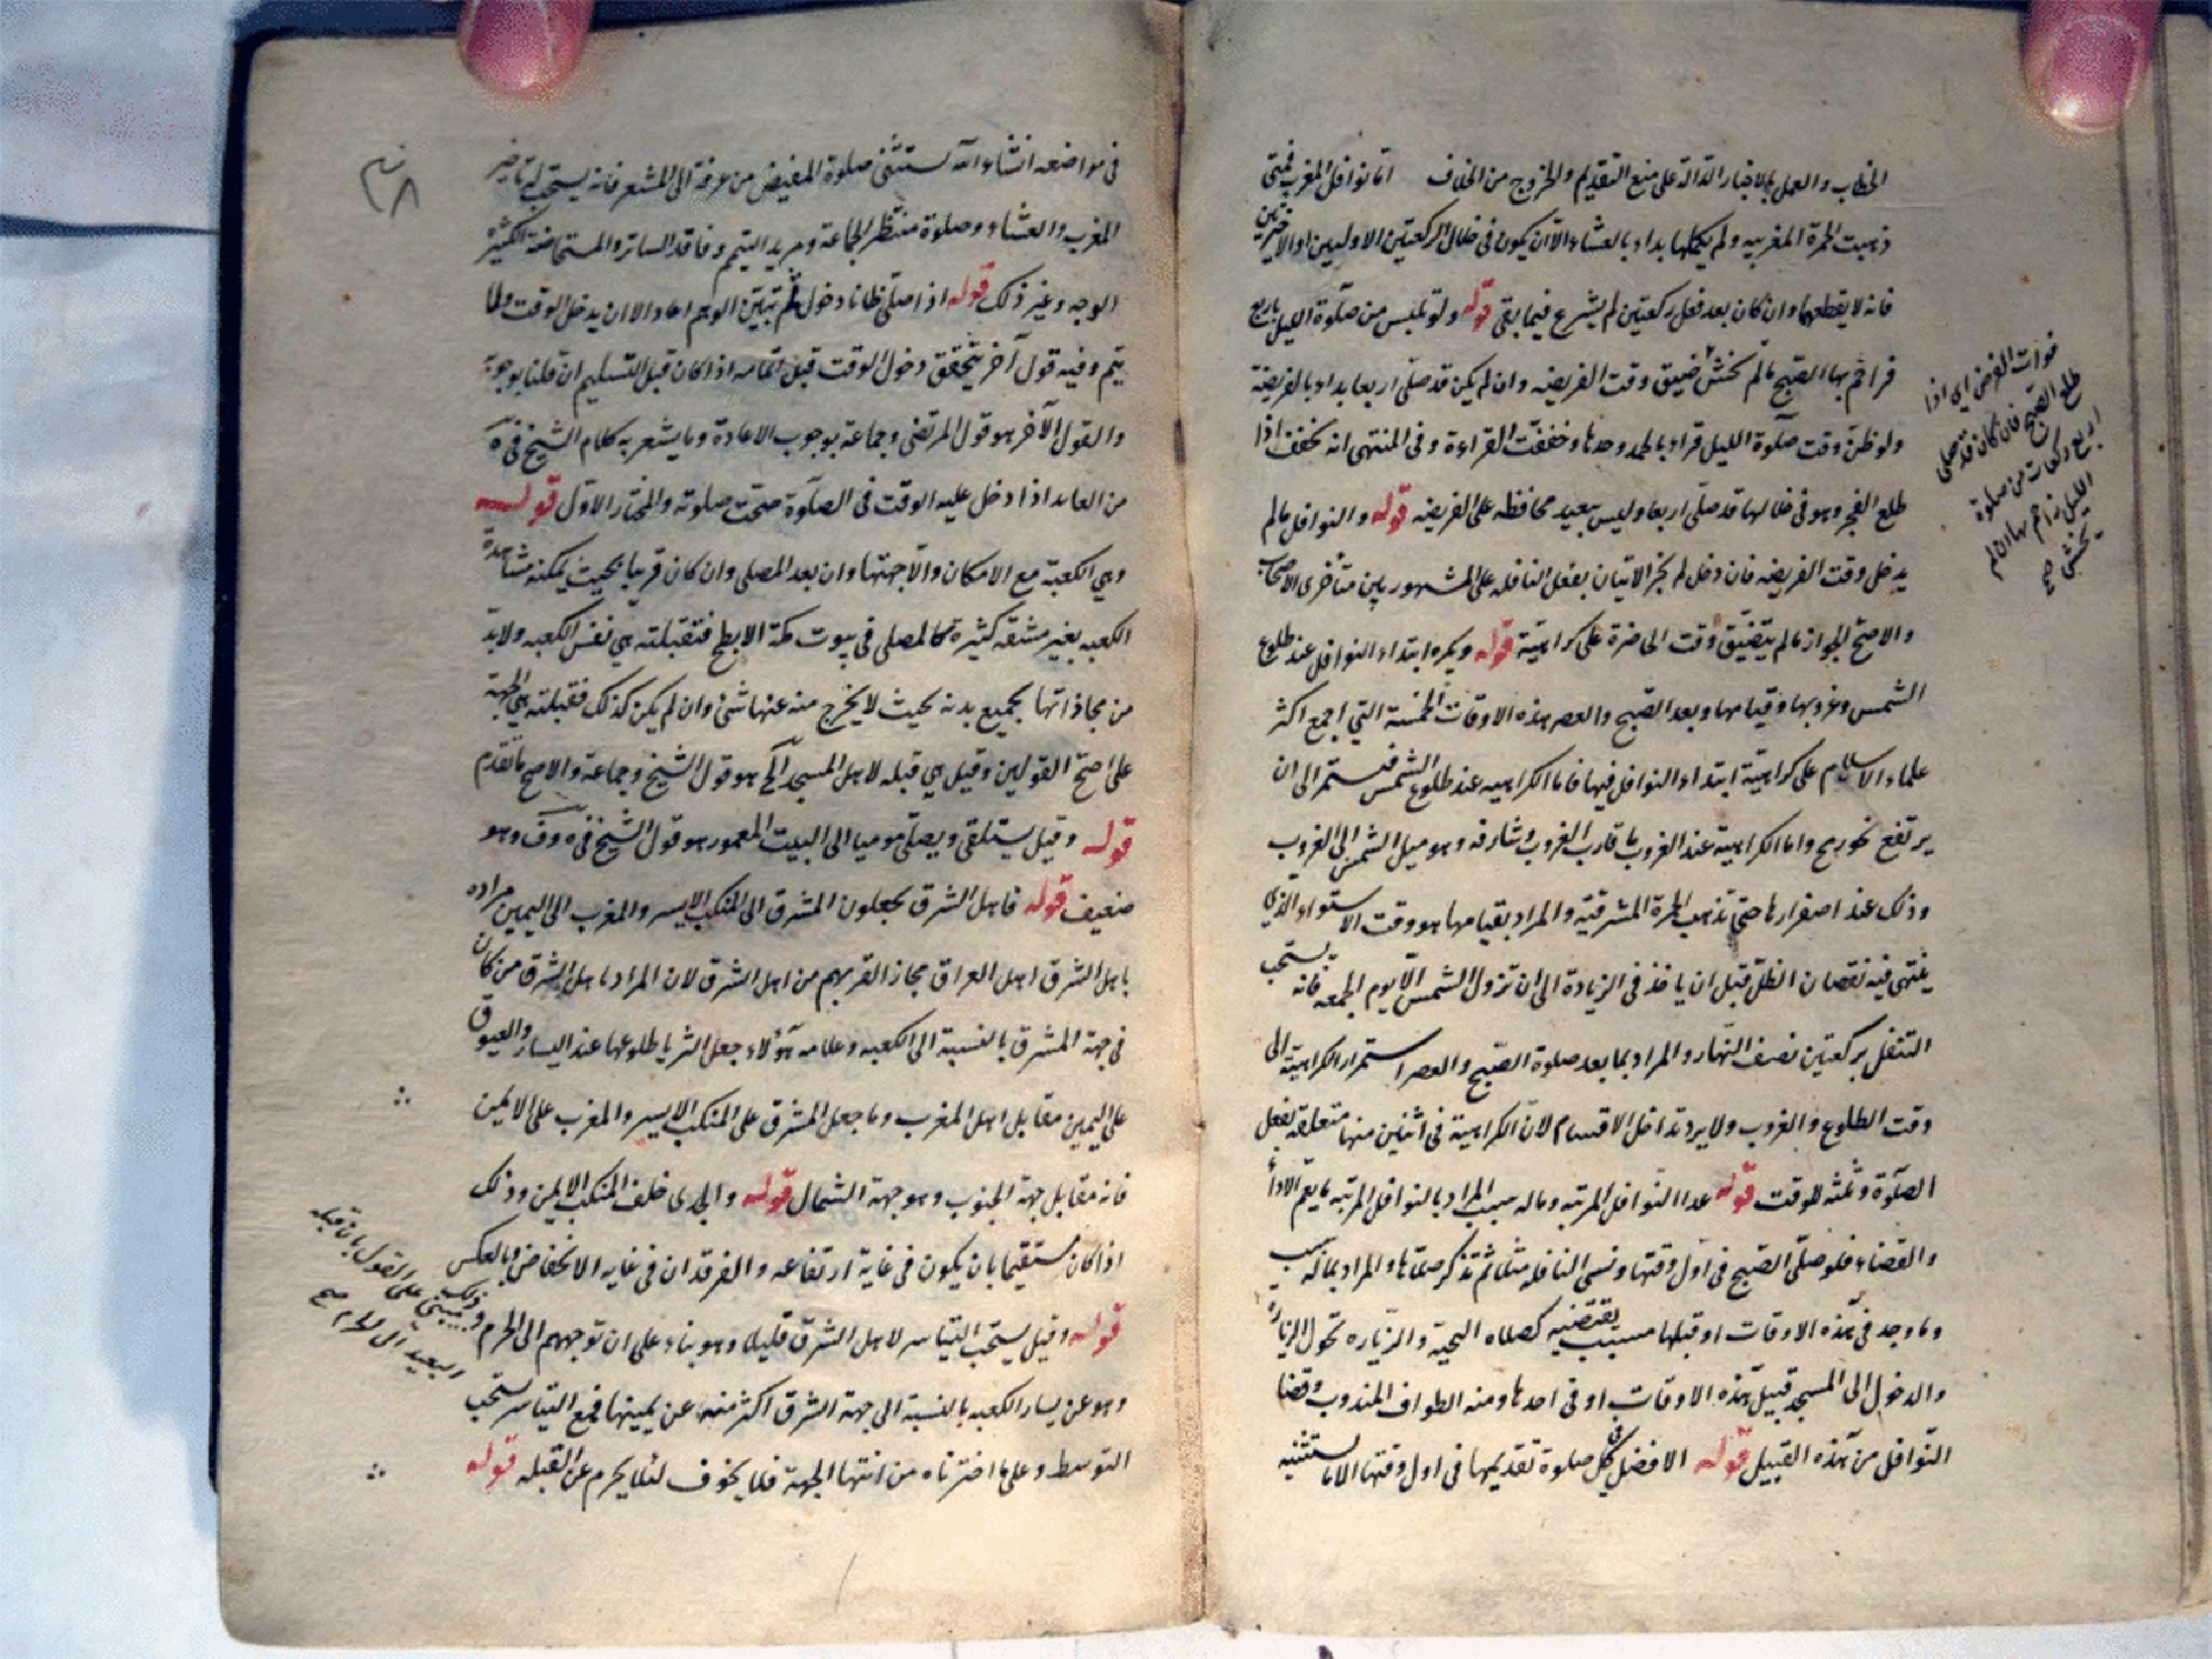 الخطاب والعمل بالاخبار الدالة على منع التقديم والخروج من الخلاف اما نوافل المغرب فمتى
ذهبت الحمرة المغربيه ولم يكملها بداء بالعشاء الا ان يكون فى خلال الركعتين الاوليين او الاخيرتين
فانه لا يقطعها وان كان بعد فعل ركعتين لم يشرع فيما بقى قوله ولو تلبس من صلوة الليل باربع
زاحم بها الصبح ما لم يخش ضيق وقت الفريضه وان لم يكن قد صلى اربعا بداء بالفريضة
ولو ظن وقت صلوة الليل قراء بالحمد وحدها وخففت القراءة وفى المنتهى انه يخفف اذا
طلع الفجر وهو فى خلالها قد صلى اربعا وليس ببعيد محافظه على الفريضه قوله والنوافل ما لم
يدخل وقت الفريضه فان دخل لم يجز الاتيان بفعل النافله على المشهور بين متأخرى الاصحاب
والاصح الجواز ما لم يتضيق وقت الحاضرة على كراهية قوله ويكره ابتداء النوافل عند طلوع
الشمس وغروبها وقيامها وبعد الصبح والعصر هذه الاوقات الخمسة التى اجمع اكثر
علماء الاسلام على كراهية ابتداء النوافل فيها فاما الكراهيه عند طلوع الشمس فيستمر الى ان
يرتفع واما الكراهية عند الغروب ما قارب الغروب وشارفه وهو ميل الشمس الى الغروب
وذلك عند اصفرارها حتى تذهب الحمرة المشرقية والمراد بقيامها هو وقت الاستواء الذى
ينتهى فيه نقصان الظل قبل ان ياخذ فى الزيادة الى ان تزول الشمس الا يوم الجمعه فانه يستحب
التنفل بركعتين نصف النهار والمراد بما بعد صلوة الصبح والعصر استمرار الكراهية الى
وقت الطلوع والغروب ولا يرد تداخل الاقسام لان الكراهية فى اثنين منها متعلقة بفعل
الصلوة وثلثه للوقت قوله عدا النوافل المرتبه وما له سبب المراد بالنوافل المرتبه ما يعم الاداء
والقضاء فلو صلى الصبح فى اول وقتها ونسى النافله مثلا ثم تذكر صلاها والمراد بما له سبب
ما وجد فى هذه الاوقات او قبلها سبب يقتضيه كصلاه التحية والزياره الزيارة
والدخول الى المسجد قبيل هذه الاوقات او فى احدها ومنه الطواف المندوب وقضاء
النوافل من هذه القبيل قوله الافضل فى كل صلوة تقديمها فى اول وقتها الا ما يستثنيه
فوات الفرض اى اذا
طلع الصبح فان كان قد صلى
اربع ركعات من صلوة
الليل زاحم بها ان لم
يخش صح
فى مواضعه انشاء الله يستثنى صلوة المفيض من عرفة الى المشعر فانه يستحب له تاخير
المغرب والعشاء وصلوة منتظر الجماعة ومريد التيمم وفاقد الساتر والمستحاضة الكثيرة
الوجه وغير ذلك قوله اذا صلى ظانا دخول ثم تبين الوهم اعاد الا ان يدخل الوقت ولما
يتم وفيه قول آخر يتحقق دخول الوقت قبل اتمامه اذا كان قبل التسليم ان قلنا بوجوبه
والقول الآخر هو قول المرتضى وجماعة بوجوب الاعادة وما يشعر به كلام الشيخ فى يه
من العامد اذا دخل عليه الوقت فى الصلوة صحت صلوته والمختار الاول قوله
وهى الكعبة مع الامكان والا جهتها وان بعد المصلى وان كان قريبا بحيث يمكنه مشاهدة
الكعبه بغير مشقه كثيرة كالمصلى فى بيوت مكة الابطح فقبلته هى نفس الكعبه ولابد
من محاذاتها بجميع بدنه بحيث لا يخرج منه عنها شئ وان لم يكن كذلك فقبلته هى الجهة
على اصح القولين وقيل هى قبله لاهل المسجد الخ هو قول الشيخ وجماعة والاصح ما تقدم
قوله وقيل يستلقى ويصلى موميا الى البيت المعمور هو قول الشيخ فى يه وف وهو
ضعيف قوله فاهل الشرق يجعلون المشرق الى المنكب الايسر والمغرب الى اليمين مراده
باهل الشرق اهل العراق مجازا لقربهم من اهل الشرق لان المراد باهل الشرق من كان
فى جهة المشرق بالنسبة الى الكعبه وعلامه هؤلاء جعل الثريا طلوعها عند اليسار والعيوق
على اليمين مقابل اهل المغرب وما جعل المشرق على المنكب الايسر والمغرب على الايمن
فانه مقابل جهة الجنوب وهو جهة الشمال قوله والجدى خلف المنكب الايمن وذلك
اذا كان مستقيما بان يكون فى غاية ارتفاعه والفرقدان فى غايه الانخفاض وبالعكس
قوله وقيل يستحب التياسر لاهل الشرق قليلا وهو بناء على ان توجههم الى الحرم
وهو عن يسار الكعبه بالنسبة الى جهة الشرق اكثر منه عن يمينها فمع التياسر يستحب
التوسط وعلى ما اخترناه من انتهاء الجهة فلا يخوف لئلا يحرم عن القبله قوله
وذلك مبنى على القول بان قبله
البعيد الى الحرام صح